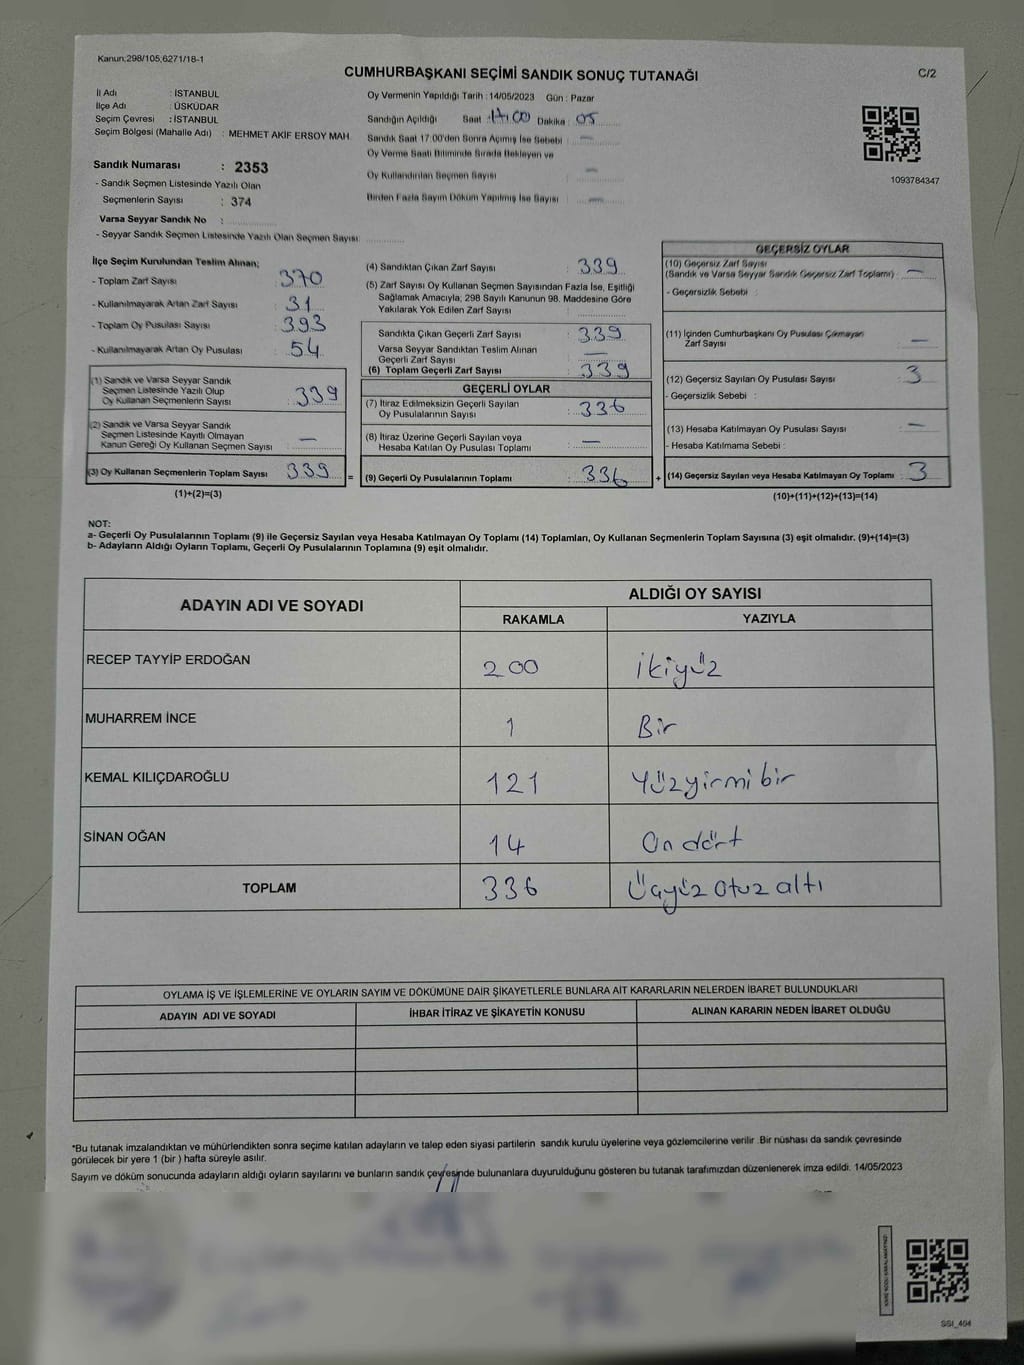 Kanun:298/105,6271/18-1
CUMHURBAŞKANI SEÇİMİ SANDIK SONUÇ TUTANAĞI
C/2
İl Adı : İSTANBUL
İlçe Adı : ÜSKÜDAR
Seçim Çevresi : İSTANBUL
Seçim Bölgesi (Mahalle Adı) : MEHMET AKİF ERSOY MAH.
Sandık Numarası : 2353
- Sandık Seçmen Listesinde Yazılı Olan
Seçmenlerin Sayısı : 374
Varsa Seyyar Sandık No :
- Seyyar Sandık Seçmen Listesinde Yazılı Olan Seçmen Sayısı:
Oy Vermenin Yapıldığı Tarih : 14/05/2023 Gün : Pazar
Sandığın Açıldığı Saat : 17:00 Dakika : 05
Sandık Saat 17:00'den Sonra Açımış İse Sebebi : —
Oy Verme Saati Bitiminde Sırada Bekleyen ve
Oy Kullandırılan Seçmen Sayısı : —
Birden Fazla Sayım Döküm Yapılmış İse Sayısı : —
1093784347
İlçe Seçim Kurulundan Teslim Alınan;
- Toplam Zarf Sayısı : 370
- Kullanılmayarak Artan Zarf Sayısı : 31
- Toplam Oy Pusulası Sayısı : 393
- Kullanılmayarak Artan Oy Pusulası : 54
(1) Sandık ve Varsa Seyyar Sandık
Seçmen Listesinde Yazılı Olup
Oy Kullanan Seçmenlerin Sayısı : 339
(2) Sandık ve Varsa Seyyar Sandık
Seçmen Listesinde Kayıtlı Olmayan
Kanun Gereği Oy Kullanan Seçmen Sayısı : —
(3) Oy Kullanan Seçmenlerin Toplam Sayısı : 339
(1)+(2)=(3)
=
(4) Sandıktan Çıkan Zarf Sayısı : 339
(5) Zarf Sayısı Oy Kullanan Seçmen Sayısından Fazla İse, Eşitliği
Sağlamak Amacıyla, 298 Sayılı Kanunun 98. Maddesine Göre
Yakılarak Yok Edilen Zarf Sayısı :
Sandıkta Çıkan Geçerli Zarf Sayısı : 339
Varsa Seyyar Sandıktan Teslim Alınan
Geçerli Zarf Sayısı : —
(6) Toplam Geçerli Zarf Sayısı : 339
GEÇERLİ OYLAR
(7) İtiraz Edilmeksizin Geçerli Sayılan
Oy Pusulalarının Sayısı : 336
(8) İtiraz Üzerine Geçerli Sayılan veya
Hesaba Katılan Oy Pusulası Toplamı : —
(9) Geçerli Oy Pusulalarının Toplamı : 336
+
GEÇERSİZ OYLAR
(10) Geçersiz Zarf Sayısı
(Sandık ve Varsa Seyyar Sandık Geçersiz Zarf Toplamı) : —
- Geçersizlik Sebebi :
(11) İçinden Cumhurbaşkanı Oy Pusulası Çıkmayan
Zarf Sayısı : —
(12) Geçersiz Sayılan Oy Pusulası Sayısı : 3
- Geçersizlik Sebebi :
(13) Hesaba Katılmayan Oy Pusulası Sayısı : —
- Hesaba Katılmama Sebebi :
(14) Geçersiz Sayılan veya Hesaba Katılmayan Oy Toplamı : 3
(10)+(11)+(12)+(13)=(14)
NOT:
a- Geçerli Oy Pusulalarının Toplamı (9) ile Geçersiz Sayılan veya Hesaba Katılmayan Oy Toplamı (14) Toplamları, Oy Kullanan Seçmenlerin Toplam Sayısına (3) eşit olmalıdır. (9)+(14)=(3)
b- Adayların Aldığı Oyların Toplamı, Geçerli Oy Pusulalarının Toplamına (9) eşit olmalıdır.
ADAYIN ADI VE SOYADI
ALDIĞI OY SAYISI
RAKAMLA YAZIYLA
RECEP TAYYİP ERDOĞAN 200 ikiyüz
MUHARREM İNCE 1 Bir
KEMAL KILIÇDAROĞLU 121 Yüzyirmi bir
SİNAN OĞAN 14 On dört
TOPLAM 336 Üçyüz otuz altı
OYLAMA İŞ VE İŞLEMLERİNE VE OYLARIN SAYIM VE DÖKÜMÜNE DAİR ŞİKAYETLERLE BUNLARA AİT KARARLARIN NELERDEN İBARET BULUNDUKLARI
ADAYIN ADI VE SOYADI İHBAR İTİRAZ VE ŞİKAYETİN KONUSU ALINAN KARARIN NEDEN İBARET OLDUĞU
*Bu tutanak imzalandıktan ve mühürlendikten sonra seçime katılan adayların ve talep eden siyasi partilerin sandık kurulu üyelerine veya gözlemcilerine verilir .Bir nüshası da sandık çevresinde
görülecek bir yere 1 (bir ) hafta süreyle asılır.
Sayım ve döküm sonucunda adayların aldığı oyların sayılarını ve bunların sandık çevresinde bulunanlara duyurulduğunu gösteren bu tutanak tarafımızdan düzenlenerek imza edildi. 14/05/2023
SSI_494